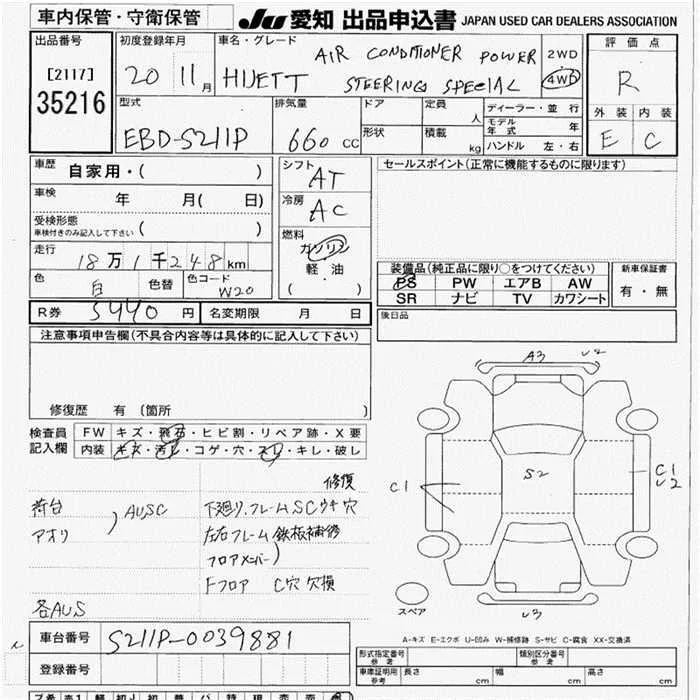 車内保管・守衛保管
JU 愛知 出品申込書 JAPAN USED CAR DEALERS ASSOCIATION
出品番号
[2117]
35216
初度登録年月
20 11月
車名・グレード
AIR CONDITIONER POWER
HIJETT STEERING SPECIAL
2WD
4WD
評価点
R
外装 内装
E C
型式
EBD-S211P
排気量
660 CC
ドア
形状
定員
人
積載
kg
ディーラー・並行
モデル年式
年
ハンドル 左・右
車歴
自家用・( )
車検
年 月( 日)
受検形態
車検付きのみ記入して下さい ( )
走行
18万1千248km
色
白
色替
色コード
W20
シフト
AT
冷房
AC
燃料
ガソリン
軽油
( ・ )
セールスポイント(正常に機能するものに限ります)
装備品(純正品に限り○をつけてください)
PS PW エアB AW
SR ナビ TV カワシート
新車保証書
有・無
R券
5440 円
名変期限 月 日
後日品
注意事項申告欄(不具合内容等は具体的に記入して下さい)
修復歴 有(箇所 )
検査員
記入欄
FW キズ・飛石・ヒビ割・リペア跡・X要
内装 キズ・汚レ・コゲ・穴・スレ・キレ・破レ
修復
荷台
アオリ
AUSC
下廻り.フレームSCウキ穴
左右フレーム鉄板補修
フロアメンバー)
Fフロア C穴 欠損
各AUS
A3
U2
C1
S2
C1
U2
U3
スペア
A-キズ E-エクボ U-凹み W-補修跡 S-サビ C-腐食 XX-交換済
車台番号
S211P-0039881
登録番号
形式指定番号
参考
類別区分番号
参考
車庫証明用
参考
長さ cm
幅 cm
高さ cm